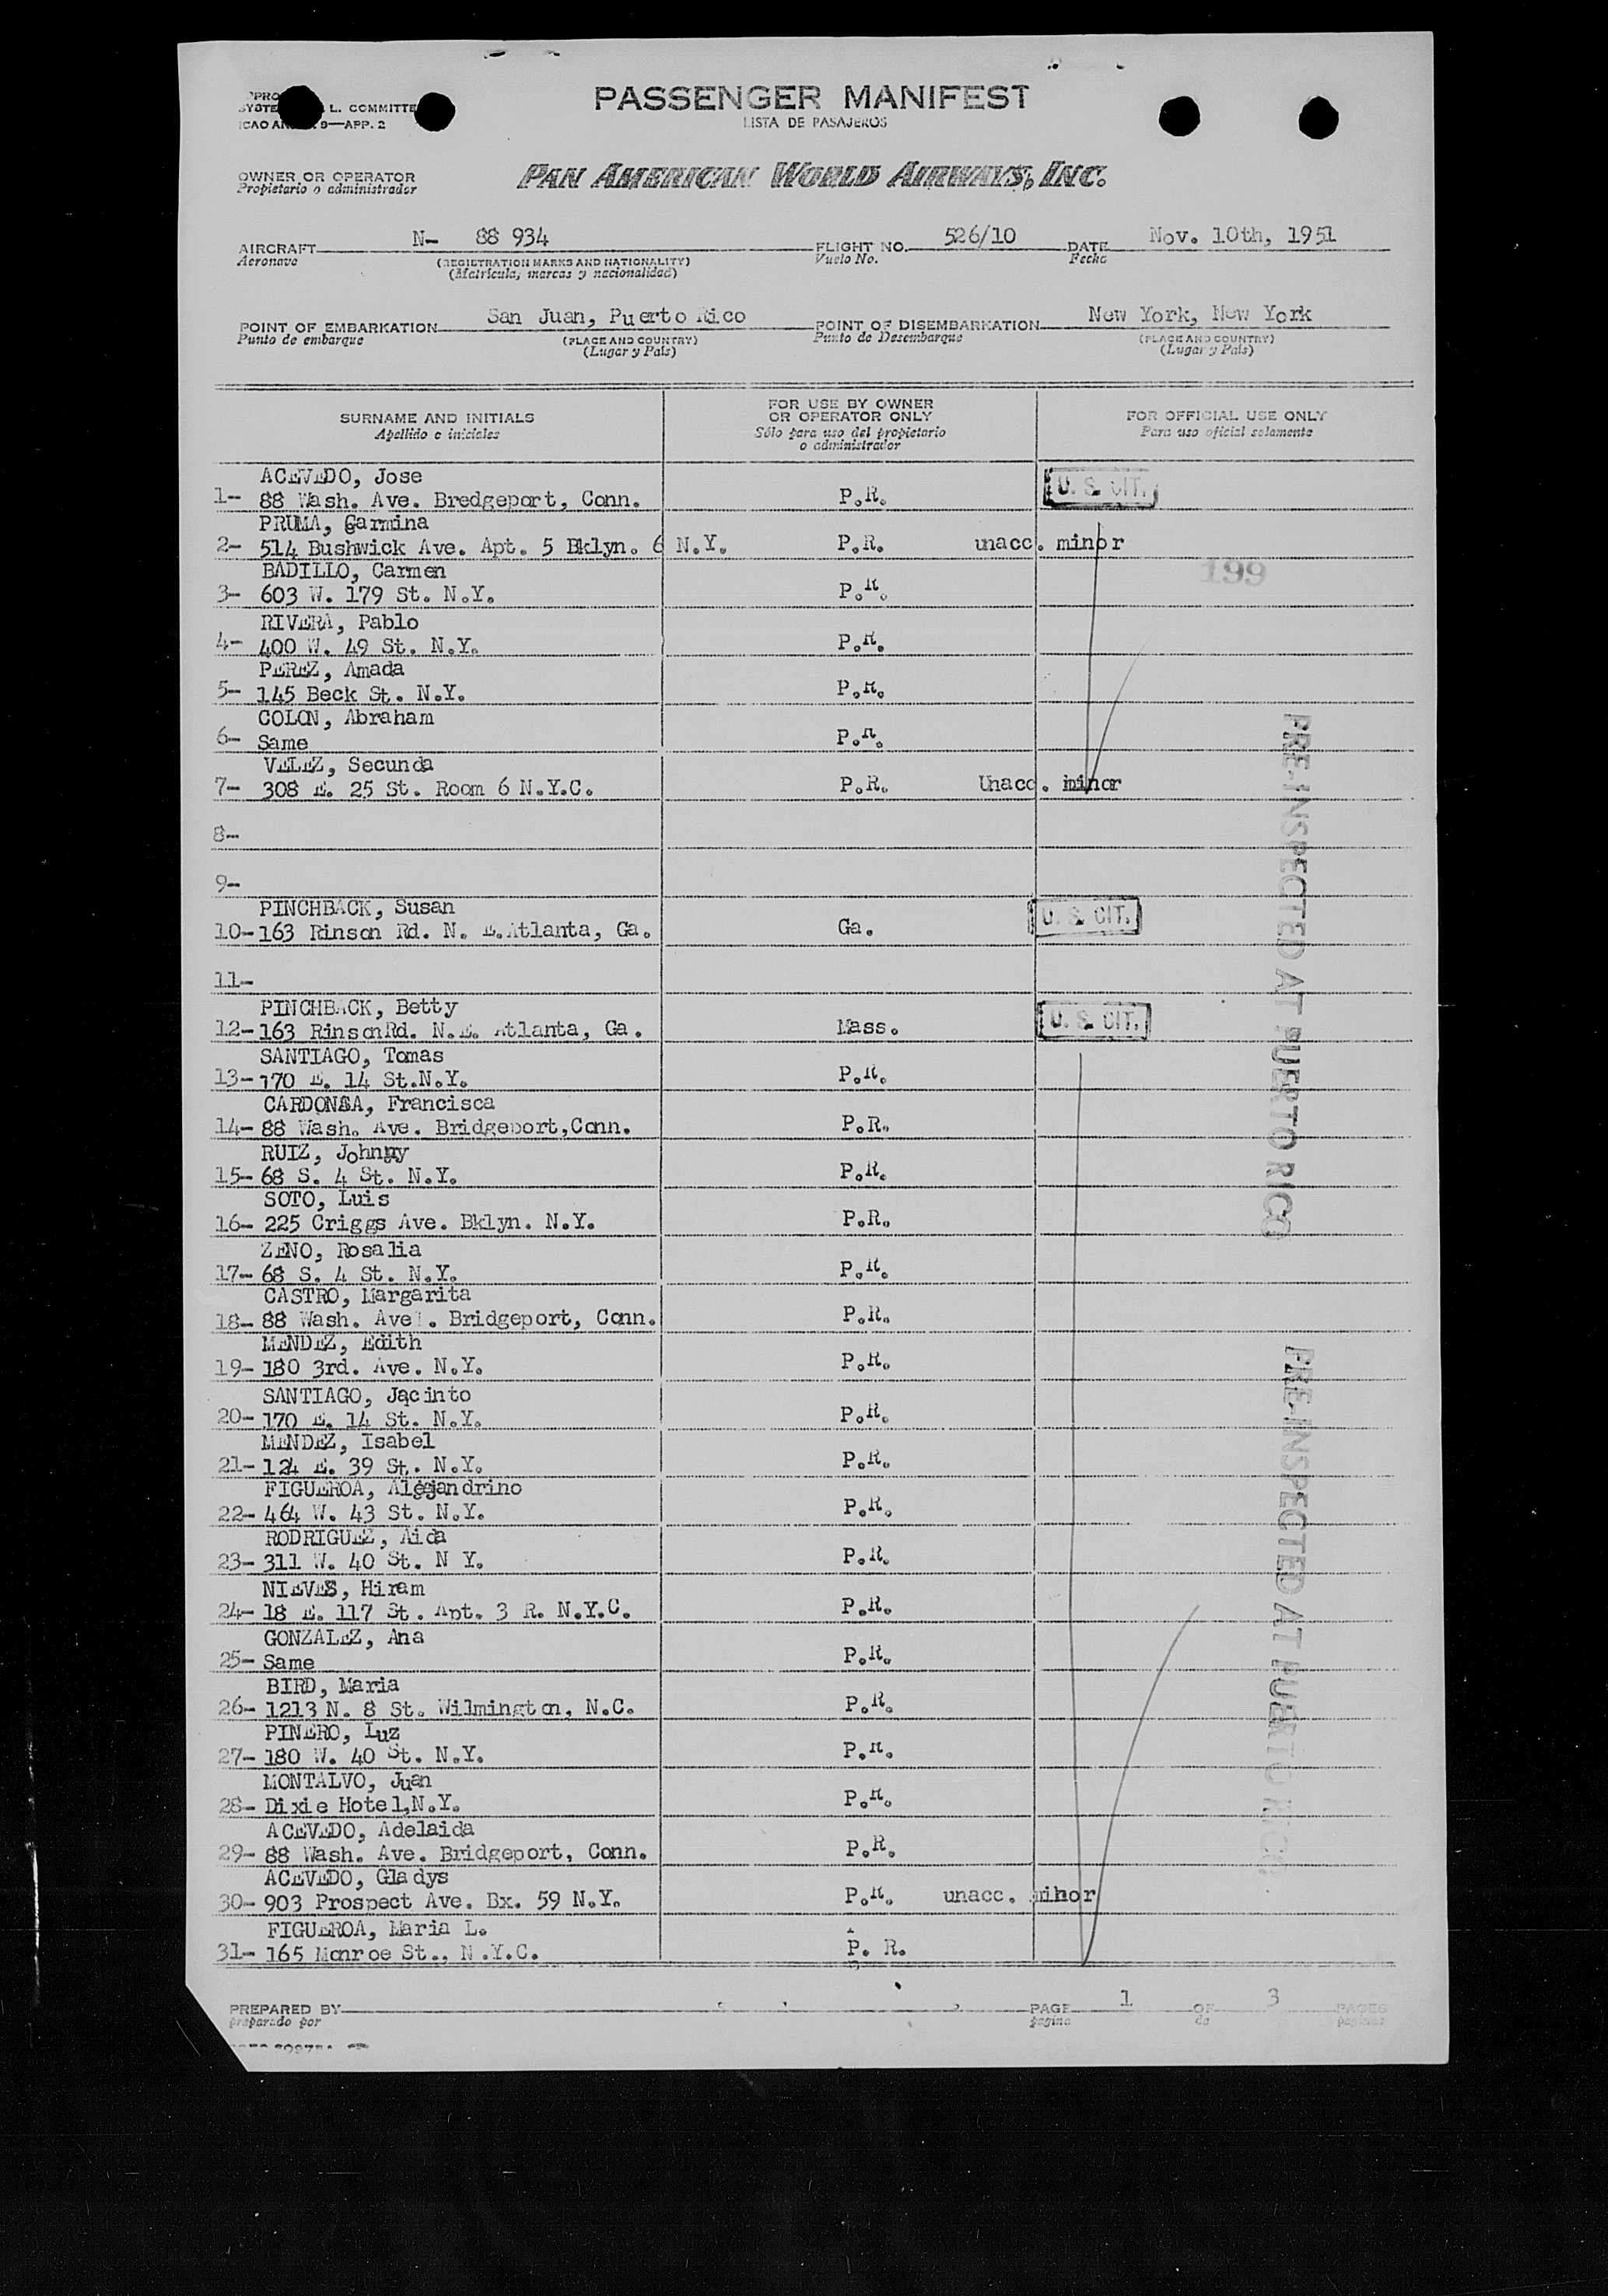 PASSENGER MANIFEST
LISTA DE PASAJEROS
L. COMMITTE
9—APP. 2
OWNER OR OPERATOR
Propietario o administrador
PAN AMERICAN WORLD AIRWAYS, INC.
AIRCRAFT N- 88 934 FLIGHT NO. 526/10 DATE Nov. 10th, 1951
Aeronave (REGISTRATION MARKS AND NATIONALITY) Vuelo No. Fecha
(Matricula, marcas y nacionalidad)
POINT OF EMBARKATION San Juan, Puerto Rico POINT OF DISEMBARKATION New York, New York
Punto de embarque (PLACE AND COUNTRY) Punto de Desembarque (PLACE AND COUNTRY)
(Lugar y País) (Lugar y País)
SURNAME AND INITIALS
Apellido e iniciales
FOR USE BY OWNER
OR OPERATOR ONLY
Sólo para uso del propietario
o administrador
FOR OFFICIAL USE ONLY
Para uso oficial solamente
ACEVEDO, Jose
1- 88 Wash. Ave. Bredgeport, Conn. P.R. U. S. CIT.
PRUMA, Garmina
2- 514 Bushwick Ave. Apt. 5 Bklyn. 6 N.Y. P.R. unacc. minor
BADILLO, Carmen 199
3- 603 W. 179 St. N.Y. P.R.
RIVERA, Pablo
4- 400 W. 49 St. N.Y. P.R.
PEREZ, Amada
5- 145 Beck St. N.Y. P.R.
COLON, Abraham
6- Same P.R.
VELEZ, Secunda
7- 308 E. 25 St. Room 6 N.Y.C. P.R. Unacc. minor
8-
9-
PINCHBACK, Susan
10- 163 Rinson Rd. N. E. Atlanta, Ga. Ga. U. S. CIT.
11-
PINCHBACK, Betty
12- 163 RinsonRd. N.E. Atlanta, Ga. Mass. U. S. CIT.
SANTIAGO, Tomas
13- 170 E. 14 St.N.Y. P.R.
CARDONSA, Francisca
14- 88 Wash. Ave. Bridgeport,Conn. P.R.
RUIZ, Johnny
15- 68 S. 4 St. N.Y. P.R.
SOTO, Luis
16- 225 Criggs Ave. Bklyn. N.Y. P.R.
ZENO, Rosalia
17- 68 S. 4 St. N.Y. P.R.
CASTRO, Margarita
18- 88 Wash. Ave. Bridgeport, Conn. P.R.
MENDEZ, Edith
19- 180 3rd. Ave. N.Y. P.R.
SANTIAGO, Jacinto
20- 170 E. 14 St. N.Y. P.R.
MENDEZ, Isabel
21- 124 E. 39 St. N.Y. P.R.
FIGUEROA, Alejandrino
22- 464 W. 43 St. N.Y. P.R.
RODRIGUEZ, Aida
23- 311 W. 40 St. N Y. P.R.
NIEVES, Hiram
24- 18 E. 117 St. Apt. 3 R. N.Y.C. P.R.
GONZALEZ, Ana
25- Same P.R.
BIRD, Maria
26- 1213 N. 8 St. Wilmington, N.C. P.R.
PINERO, Luz
27- 180 W. 40 St. N.Y. P.R.
MONTALVO, Juan
28- Dixie Hotel,N.Y. P.R.
ACEVEDO, Adelaida
29- 88 Wash. Ave. Bridgeport, Conn. P.R.
ACEVEDO, Gladys
30- 903 Prospect Ave. Bx. 59 N.Y. P.R. unacc. minor
FIGUEROA, Maria L.
31- 165 Monroe St., N.Y.C. P. R.
PRE-INSPECTED AT PUERTO RICO
PRE-INSPECTED AT PUERTO RICO
PREPARED BY PAGE 1 OF 3 PAGES
preparado por pagina de paginas